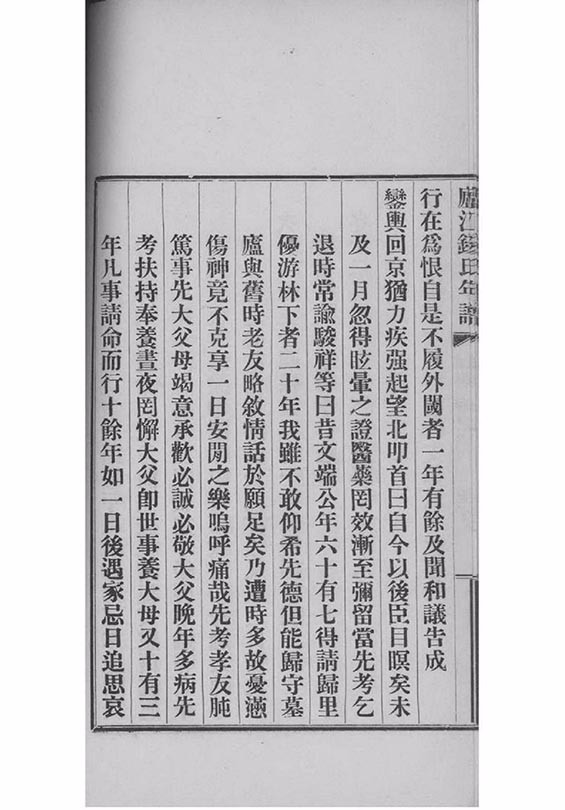 廬江錢氏年譜
行在爲恨自是不履外閾者一年有餘及聞和議告成
鑾輿回京猶力疾强起望北叩首曰自今以後臣目瞑矣未
及一月忽得眩暈之證醫藥罔效漸至彌留當先考乞
退時常諭駿祥等曰昔文端公年六十有七得請歸里
優游林下者二十年我雖不敢仰希先德但能歸守墓
廬與舊時老友略敘情話於願足矣乃遭時多故憂懣
傷神竟不克享一日安閒之樂嗚呼痛哉先考孝友肫
篤事先大父母竭意承歡必誠必敬大父晚年多病先
考扶持奉養晝夜罔懈大父卽世事養大母又十有三
年凡事請命而行十餘年如一日後遇家忌日追思哀